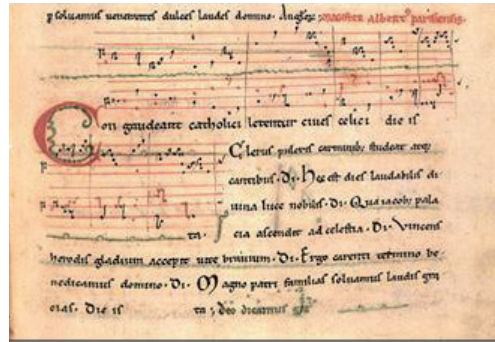 p soluamus uenerantes dulces laudes domino. Magister albert' parisiensis.
Con gaudeant catholici letentur ciues celici die is
Clerus pulcris carminib; studeat atq;
cantibus. Di. Hec est dies laudabilis di
uina luce nobilis. Di. Qua iacob; pala
ta. cia ascendit ad celestia. Di. Vincens
herodis gladium accepit uite brauium. Di. Ergo carenti termino be
nedicamus domino. Di. Magno patri familias soluamus laudis gra
cias. Die is ta; deo dicamus